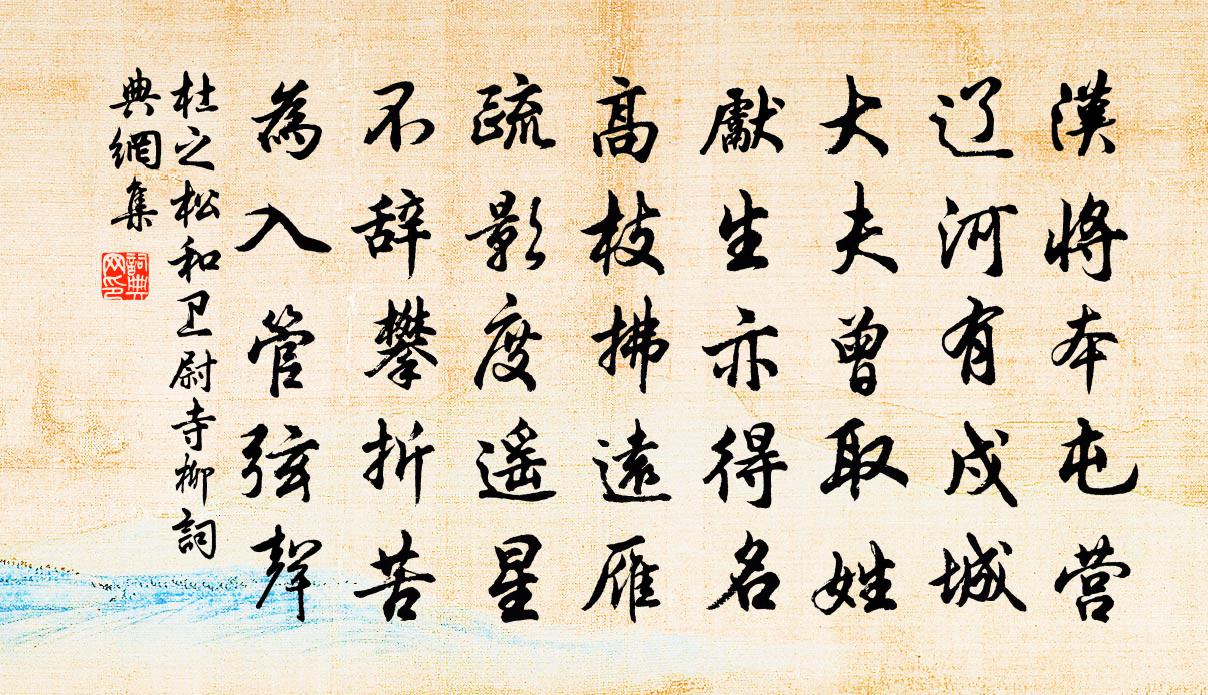 漢将本屯营
辽河有戍城
大夫曾取姓
獻生亦得名
高枝拂遠雁
疏影度遥星
不辞攀折苦
為入管弦聲
杜之松和卫尉寺柳詞
典網集
詞典網印